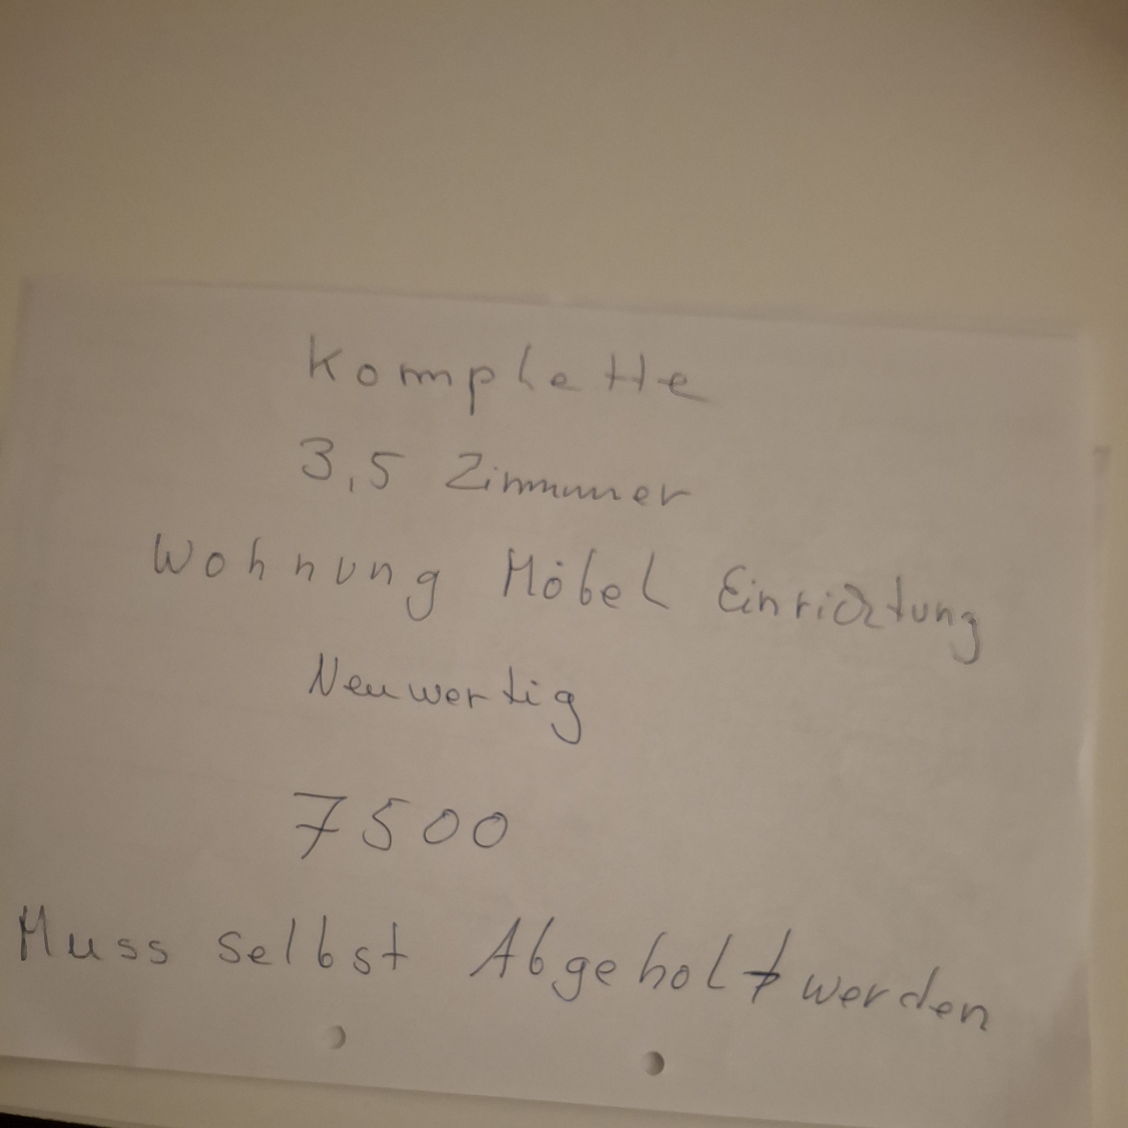 Komplette
3,5 Zimmer
Wohnung Möbel Einrichtung
Neuwertig
7500
Muss selbst Abgeholt werden